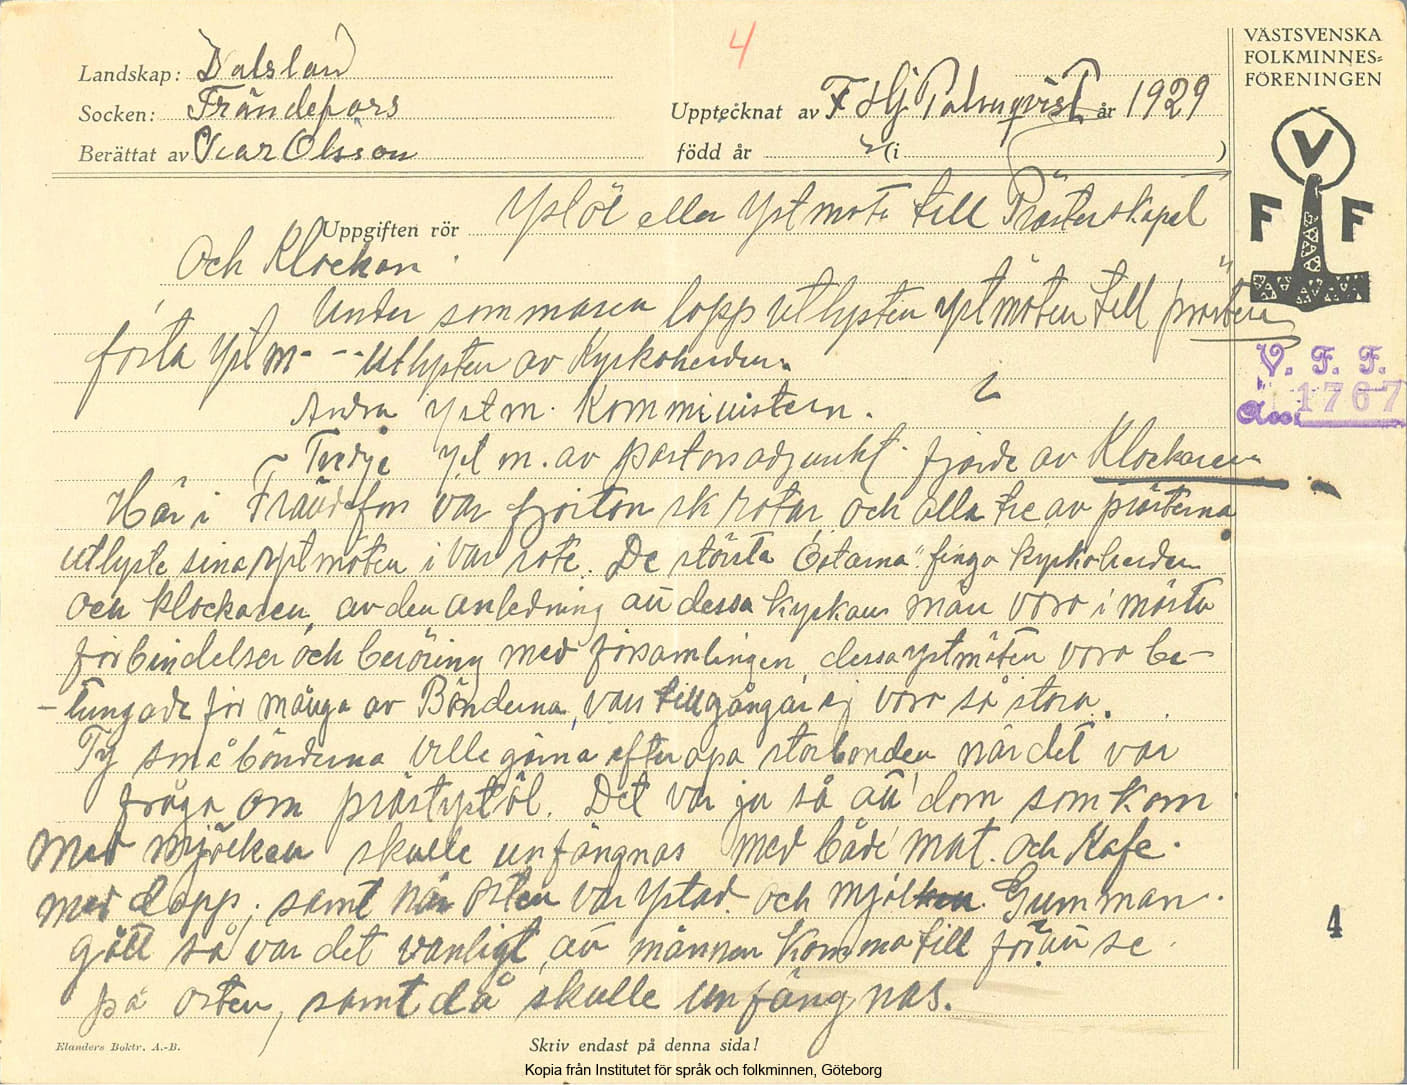 4
VÄSTSVENSKA
FOLKMINNES-
FÖRENINGEN
Landskap: Dalsland
Socken: Frändefors
Upptecknat av F Hj Palmqvist år 1929
Berättat av Ivar Olsson
född år (i )
V
F F
Uppgiften rör Ystöl eller Ystmöte till Prästerskapet
och Klockan
Under sommaren lopp utlysten ystmöten till prästern
första Yst m- -- utlysten av Kyrkoherden.
Andra yst m. Komministern.
Tredje yst m. av pastorsadjunkt. fjärde av Klockaren
V. F. F.
1767
Här i Frändefors var fjorton sk rotar och alla tre av prästerna
utlyste sina ystmöten i var rote. De största Ostarna" fingo kyrkoherden
och klockaren, av den anledning att dessa kyrkans män voro i mästa
förbindelser och beröring med församlingen, dessa ystmöten voro be-
-tungade för många av Bönderna, vars tillgångar ej voro så stora.
Ty småbönderna ville gärna efterapa storbonden när det var
fråga om prästystöl. Det var ju så att dom som kom
med mjölken skulle unfängnas med både mat. och Kafe.
med dopp; samt när osten var ystad och mjölken Gumman.
gått så var det vanligt att männen komma till för att se
på osten, samt då skulle unfängnas.
4
Elanders Boktr. A.-B.
Skriv endast på denna sida!
Kopia från Institutet för språk och folkminnen, Göteborg